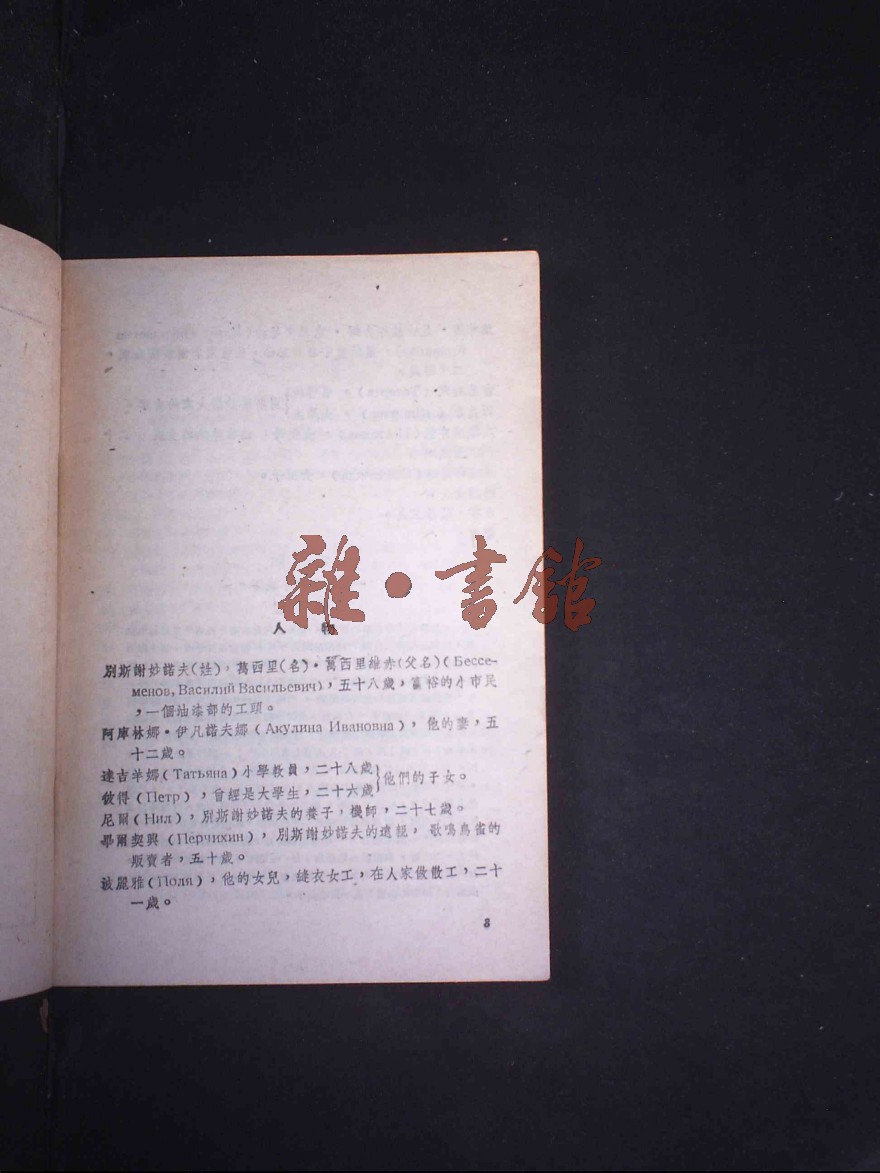 雜•書館
人物
別斯謝妙諾夫(姓)，萬西里(名)•萬西里維赤(父名)(Бессе-
менов, Василий Васильевич)，五十八歲，富裕的小市民
，一個油漆部的工頭。
阿庫林娜•伊凡諾夫娜(Акулина Ивановна)，他的妻，五
十二歲。
達吉羊娜(Татьяна)小學教員，二十八歲}他們的子女。
彼得(Петр)，曾經是大學生，二十六歲
尼爾(Нил)，別斯謝妙諾夫的養子，機師，二十七歲。
畀爾契興(Перчихин)，別斯謝妙諾夫的遠親，歌鳴鳥雀的
販賣者，五十歲。
波麗雅(Поля)，他的女兒，縫衣女工，在人家做散工，二十
一歲。
3